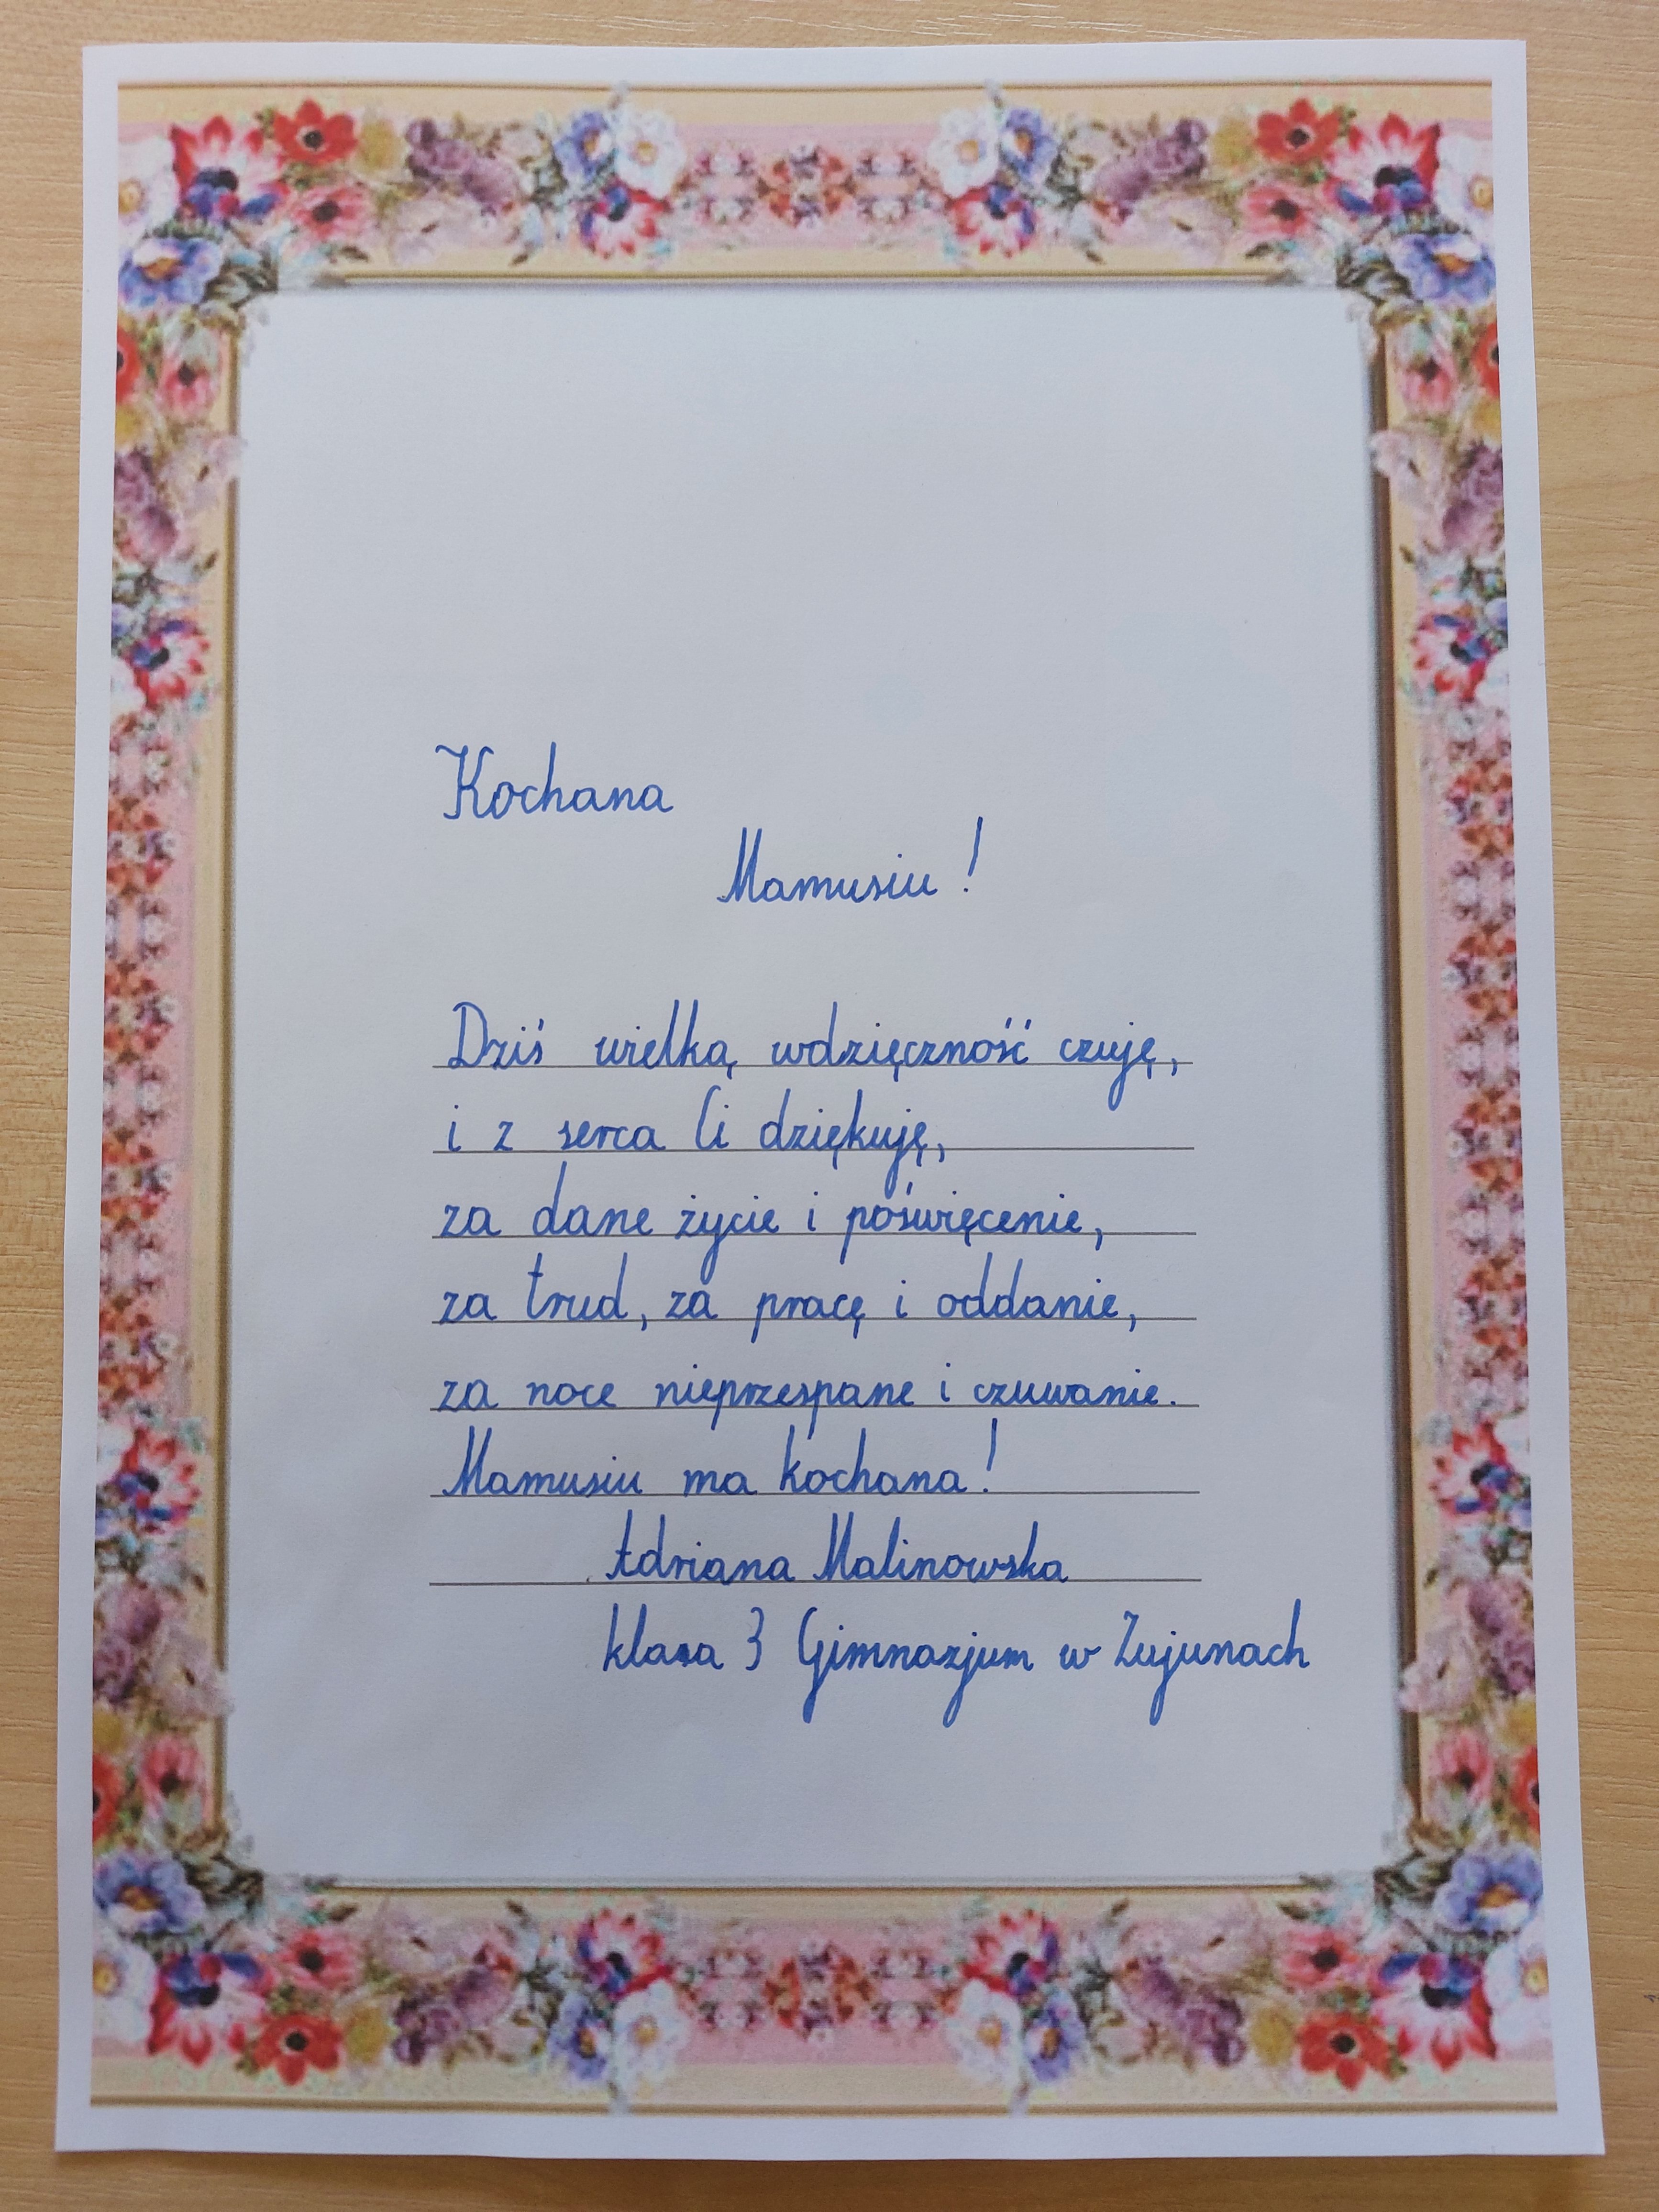 Kochana
Mamusiu!
Dziś wielką wdzięczność czuję,
i z serca Ci dziękuję,
za dane życie i poświęcenie,
za trud, za pracę i oddanie,
za noce nieprzespane i czuwanie.
Mamusiu ma kochana!
Adriana Malinowska
klasa 3 Gimnazjum w Zujunach